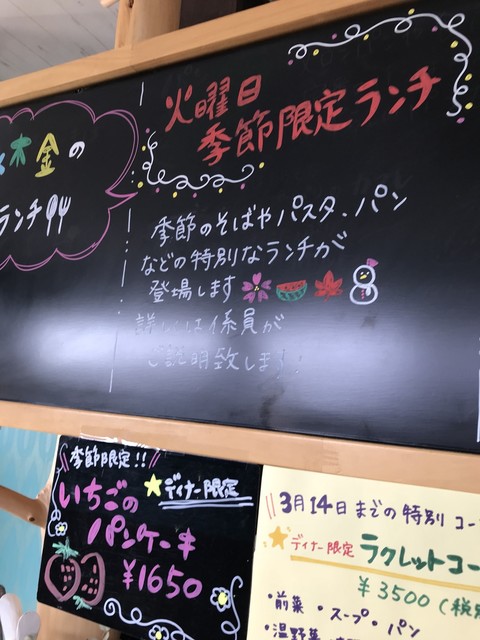 木金の
ランチ
火曜日
季節限定ランチ
季節のそばやパスタ、パン
などの特別なランチが
登場します
詳しくは係員が
ご説明致します!
季節限定!!
ディナー限定
いちごの
パンケーキ
¥1650
3月14日までの特別コー
ディナー限定
ラクレットコー
¥3500(税
・前菜・スープ・パン
・温野菜